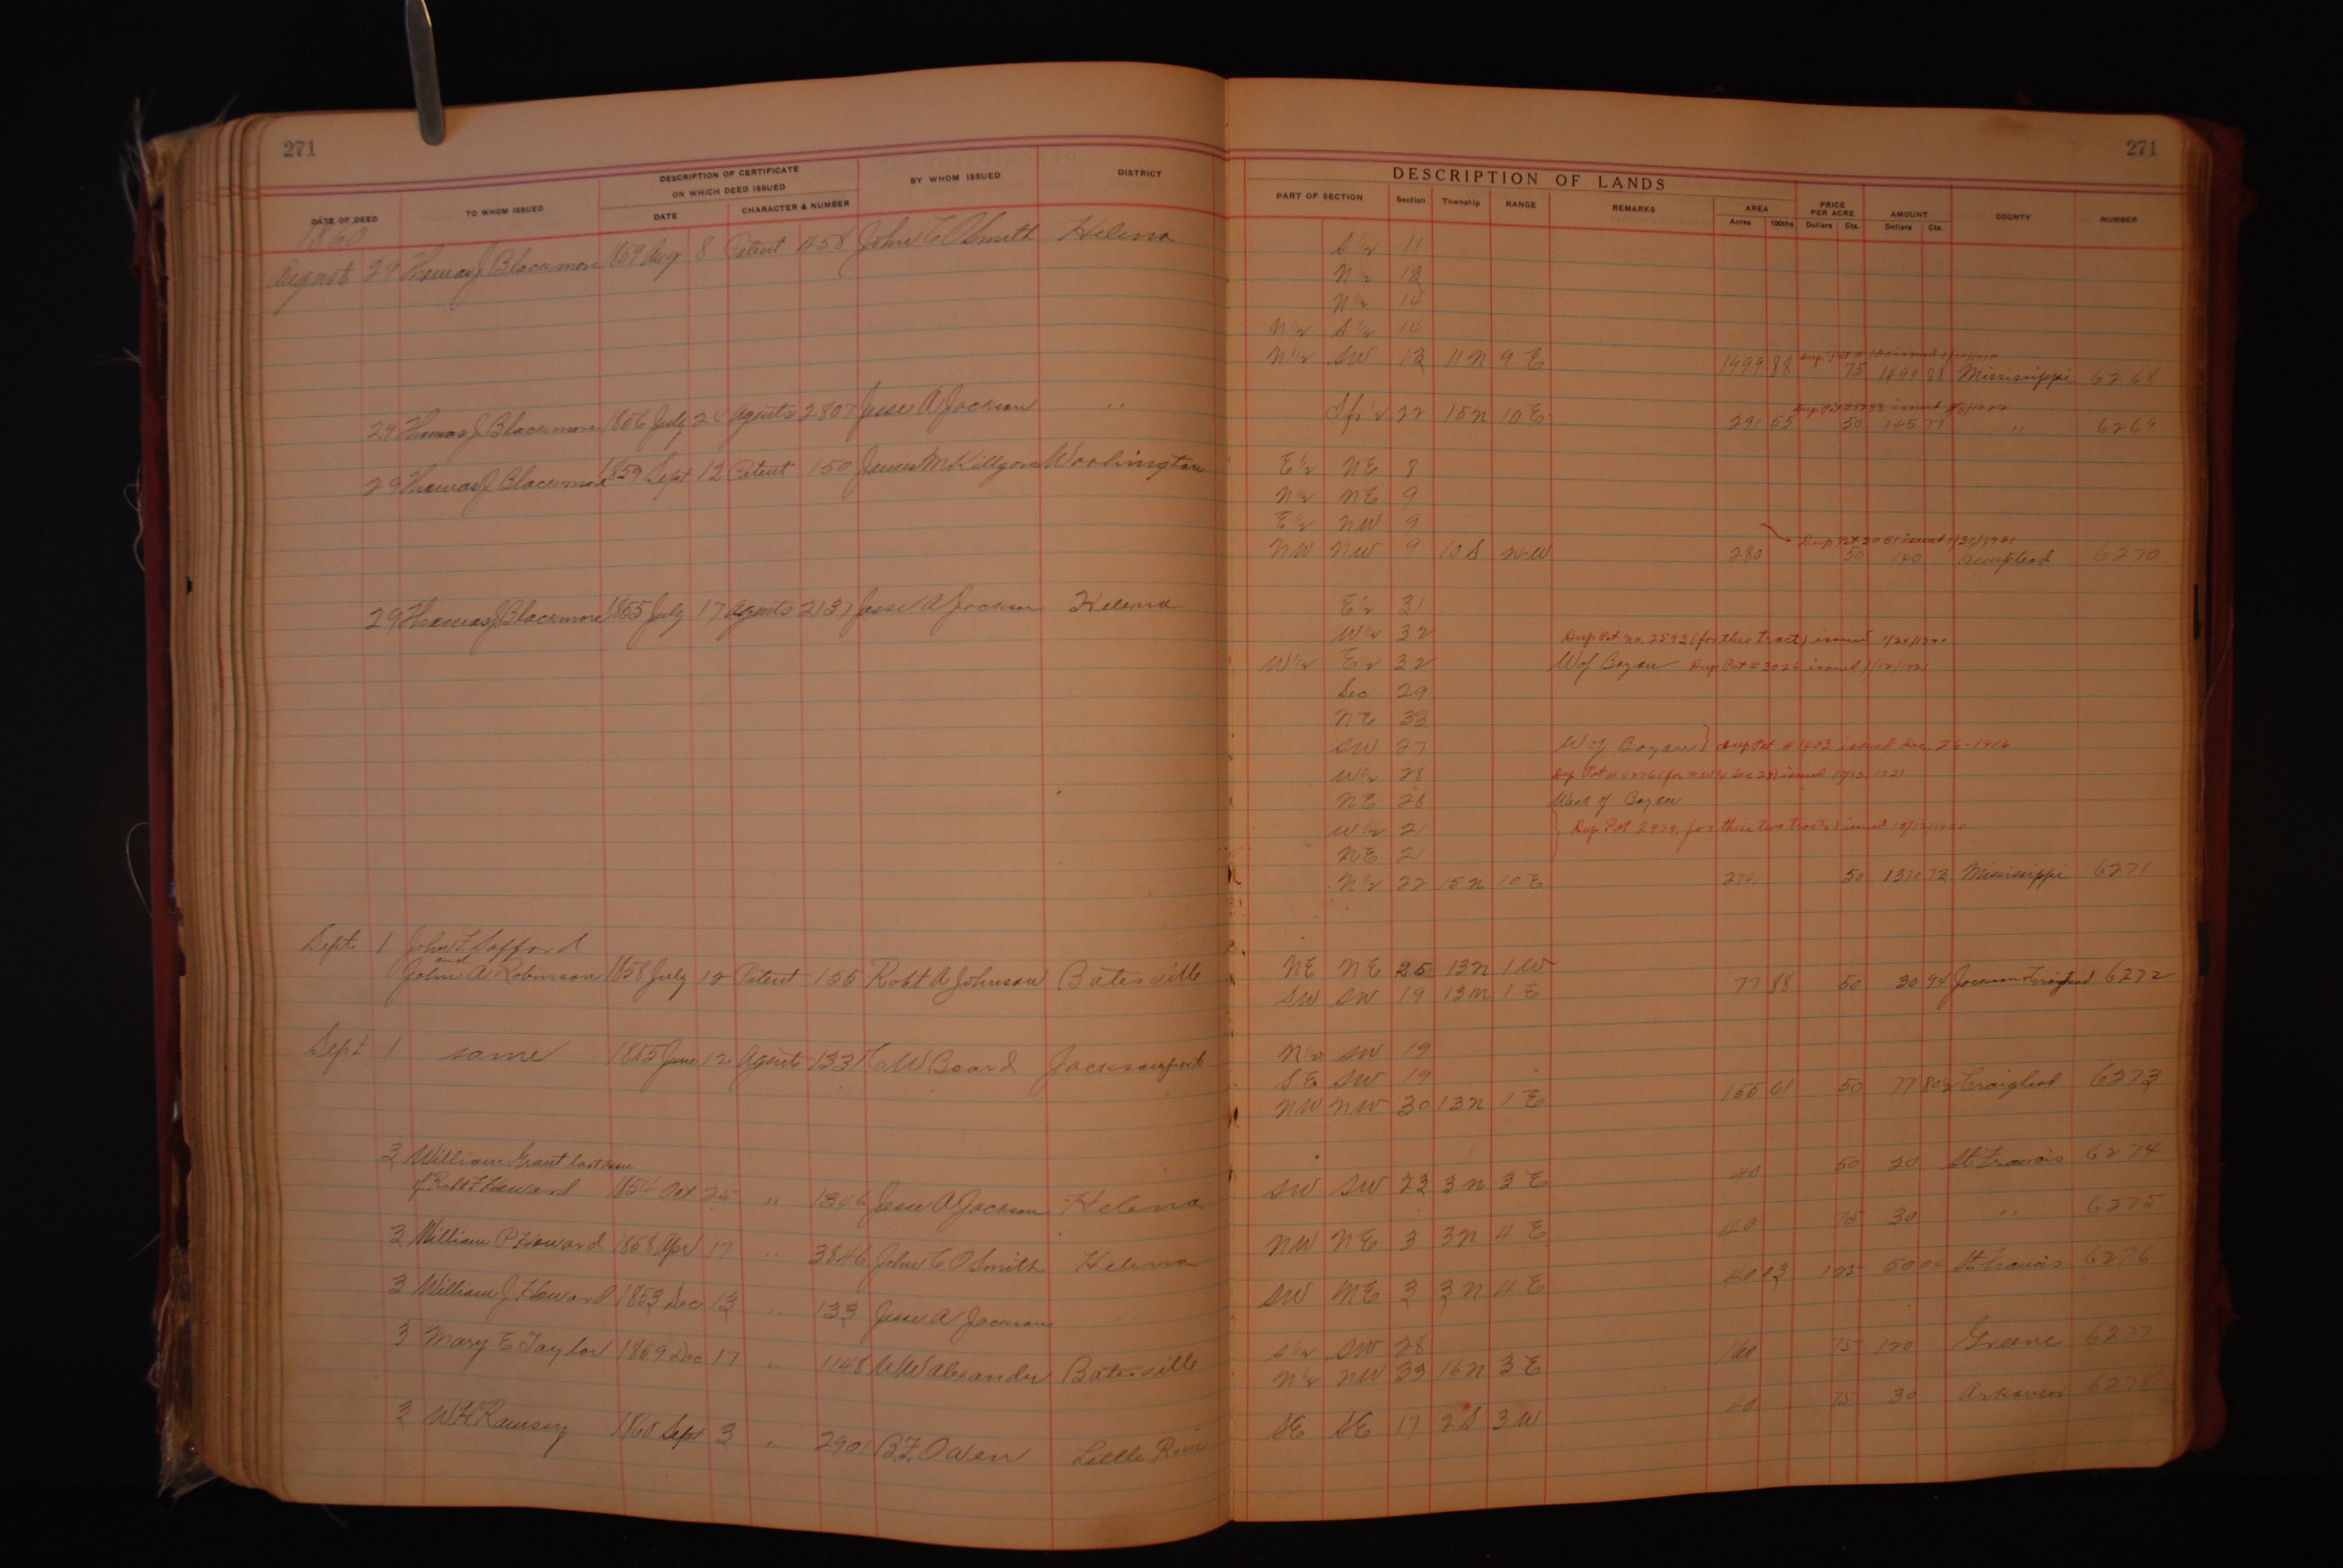 271
271
DESCRIPTION OF CERTIFICATE
ON WHICH DEED ISSUED
DATE OF DEED TO WHOM ISSUED DATE CHARACTER & NUMBER BY WHOM ISSUED DISTRICT
DESCRIPTION OF LANDS
PART OF SECTION Section Township RANGE REMARKS AREA Acres 100ths PRICE PER ACRE Dollars Cts. AMOUNT Dollars Cts. COUNTY NUMBER
1860
August 29 Thomas J Blackmore 1859 Aug 8 Patent 458 John C O Smith Helena S 1/2 11
N 1/2 13
N 1/2 14
N 1/2 S 1/2 14
N 1/2 SW 13 11 N 9 E 1999 88 75 1499 88 Mississippi 6268
29 Thomas J Blackmore 1856 July 24 Agents 2807 Jesse A Jackson " S fr 1/2 22 15 N 10 E 291 55 50 145 77 " 6269
29 Thomas J Blackmore 1859 Sept 12 Patent 150 James M Killgore Washington E 1/2 NE 8
N 1/2 NE 9
E 1/2 NW 9
NW NW 9 10 S 280 50 140 Hempstead 6270
29 Thomas J Blackmore 1855 July 17 Agents 2137 Jesse A Jackson Helena E 1/2 31
W 1/2 32 Dup Pat no. 2593 (for this tract) issued
W 1/2 E 1/2 32 W of Bayou Dup Pat # 3026 issued
Sec 29
NE 33
SW 27 W of Bayou } Dup Pat # 1403 issued Dec. 26-1916
W 1/2 28
NE 28 West of Bayou
W 1/2 21 Dup Pat 2979, for these two tracts issued
NE 21
N 1/2 22 15 N 10 E 2741 50 1370 73 Mississippi 6271
Sept. 1 John F Safford
and
John A Robinson 1858 July 12 Patent 155 Robt A Johnson Batesville NE NE 25 13 N 1 W
SW SW 19 13 N 1 E 77 88 50 30 94 Jackson Craighead 6272
Sept 1 same 1855 June 12 Agents 1331 C W Board Jacksonport N 1/2 SW 19
SE SW 19
NW NW 30 13 N 1 E 155 61 50 77 80 1/2 Craighead 6273
3 William Grant last
of Robt F Howard 1854 Oct 25 " 1346 Jesse A Jackson Helena SW SW 23 3 N 3 E 40 50 20 St Francis 6274
3 William P Howard 1858 Apr 17 " 3846 John C O Smith Helena NW NE 3 3 N 4 E 40 75 30 " 6275
3 William J Howard 1853 Dec 13 " 133 Jesse A Jackson " SW NE 3 3 N 4 E 40 03 1 25 50 04 St Francis 6276
3 Mary E Taylor 1859 Dec 17 " 1148 W W Alexander Batesville S 1/2 SW 28
N 1/2 NW 33 16 N 3 E 160 75 120 Greene 6277
3 W H Ramsey 1860 Sept 3 " 2901 B. F. Owen Little Rock SE SE 17 2 S 3 W 40 75 30 Arkansas 6278